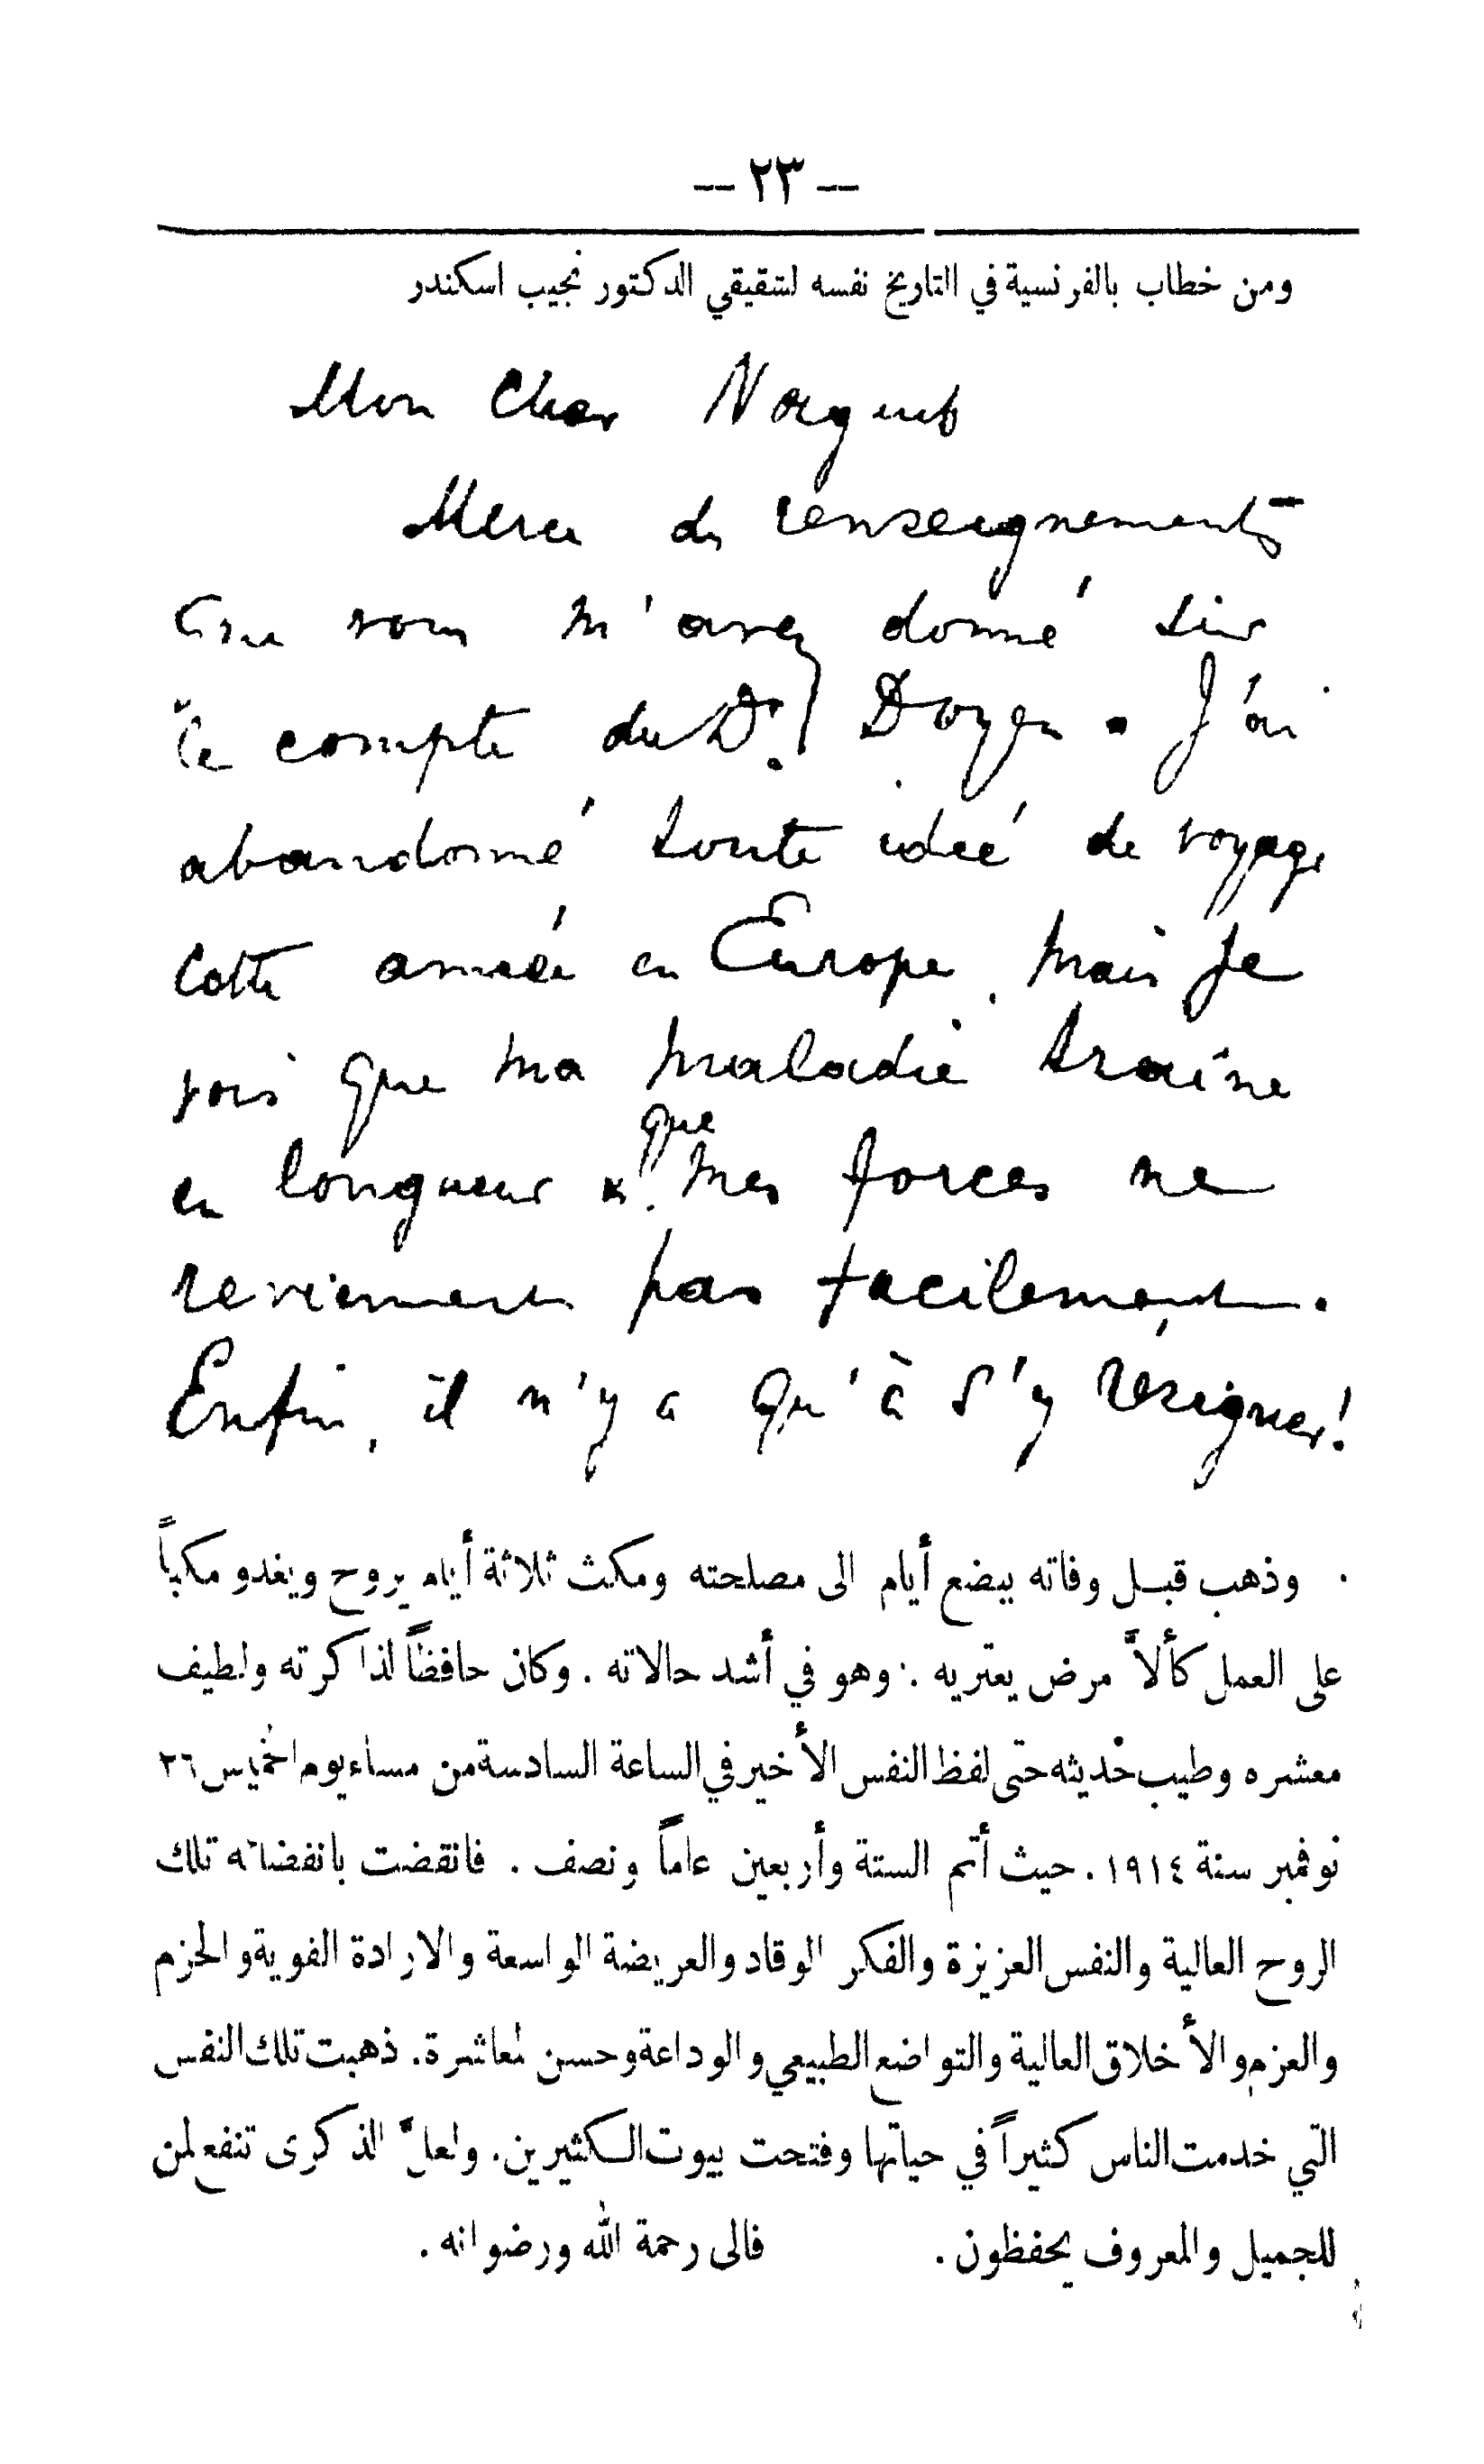 -- ٢٣ --
ومن خطاب بالفرنسية في التاريخ نفسه لشقيقي الدكتور نجيب اسكندر
Mon Cher Naguib
Merci des renseignements
que vous m'avez donné sur
le compte du Dr. Doyen. J'ai
abandonné toute idée de voyage
cette année en Europe. Mais je
vois que ma maladie traîne
en longueur & que mes forces ne
reviennent pas facilement.
Enfin, il n'y a qu'à s'y résigner!
وذهب قبل وفاته ببضع أيام الى مصلحته ومكث ثلاثة أيام يروح ويغدو مكباً
على العمل كألاَّ مرض يعتريه . وهو في أشد حالاته . وكان حافظاً لذاكرته ولطيف
معشره وطيب حديثه حتى لفظ النفس الأخير في الساعة السادسة من مساء يوم الخميس ٢٦
نوفمبر سنة ١٩١٤ . حيث أتم الستة وأربعين عاماً ونصف . فانقضت بانقضائه تلك
الروح العالية والنفس العزيزة والفكر الوقاد والعريضة الواسعة والارادة القوية والحزم
والعزم والأخلاق العالية والتواضع الطبيعي والوداعة وحسن المعاشرة . ذهبت تلك النفس
التي خدمت الناس كثيراً في حياتها وفتحت بيوت الكثيرين . ولعلَّ الذكرى تنفع لمن
للجميل والمعروف يحفظون . فالى رحمة الله ورضوانه .